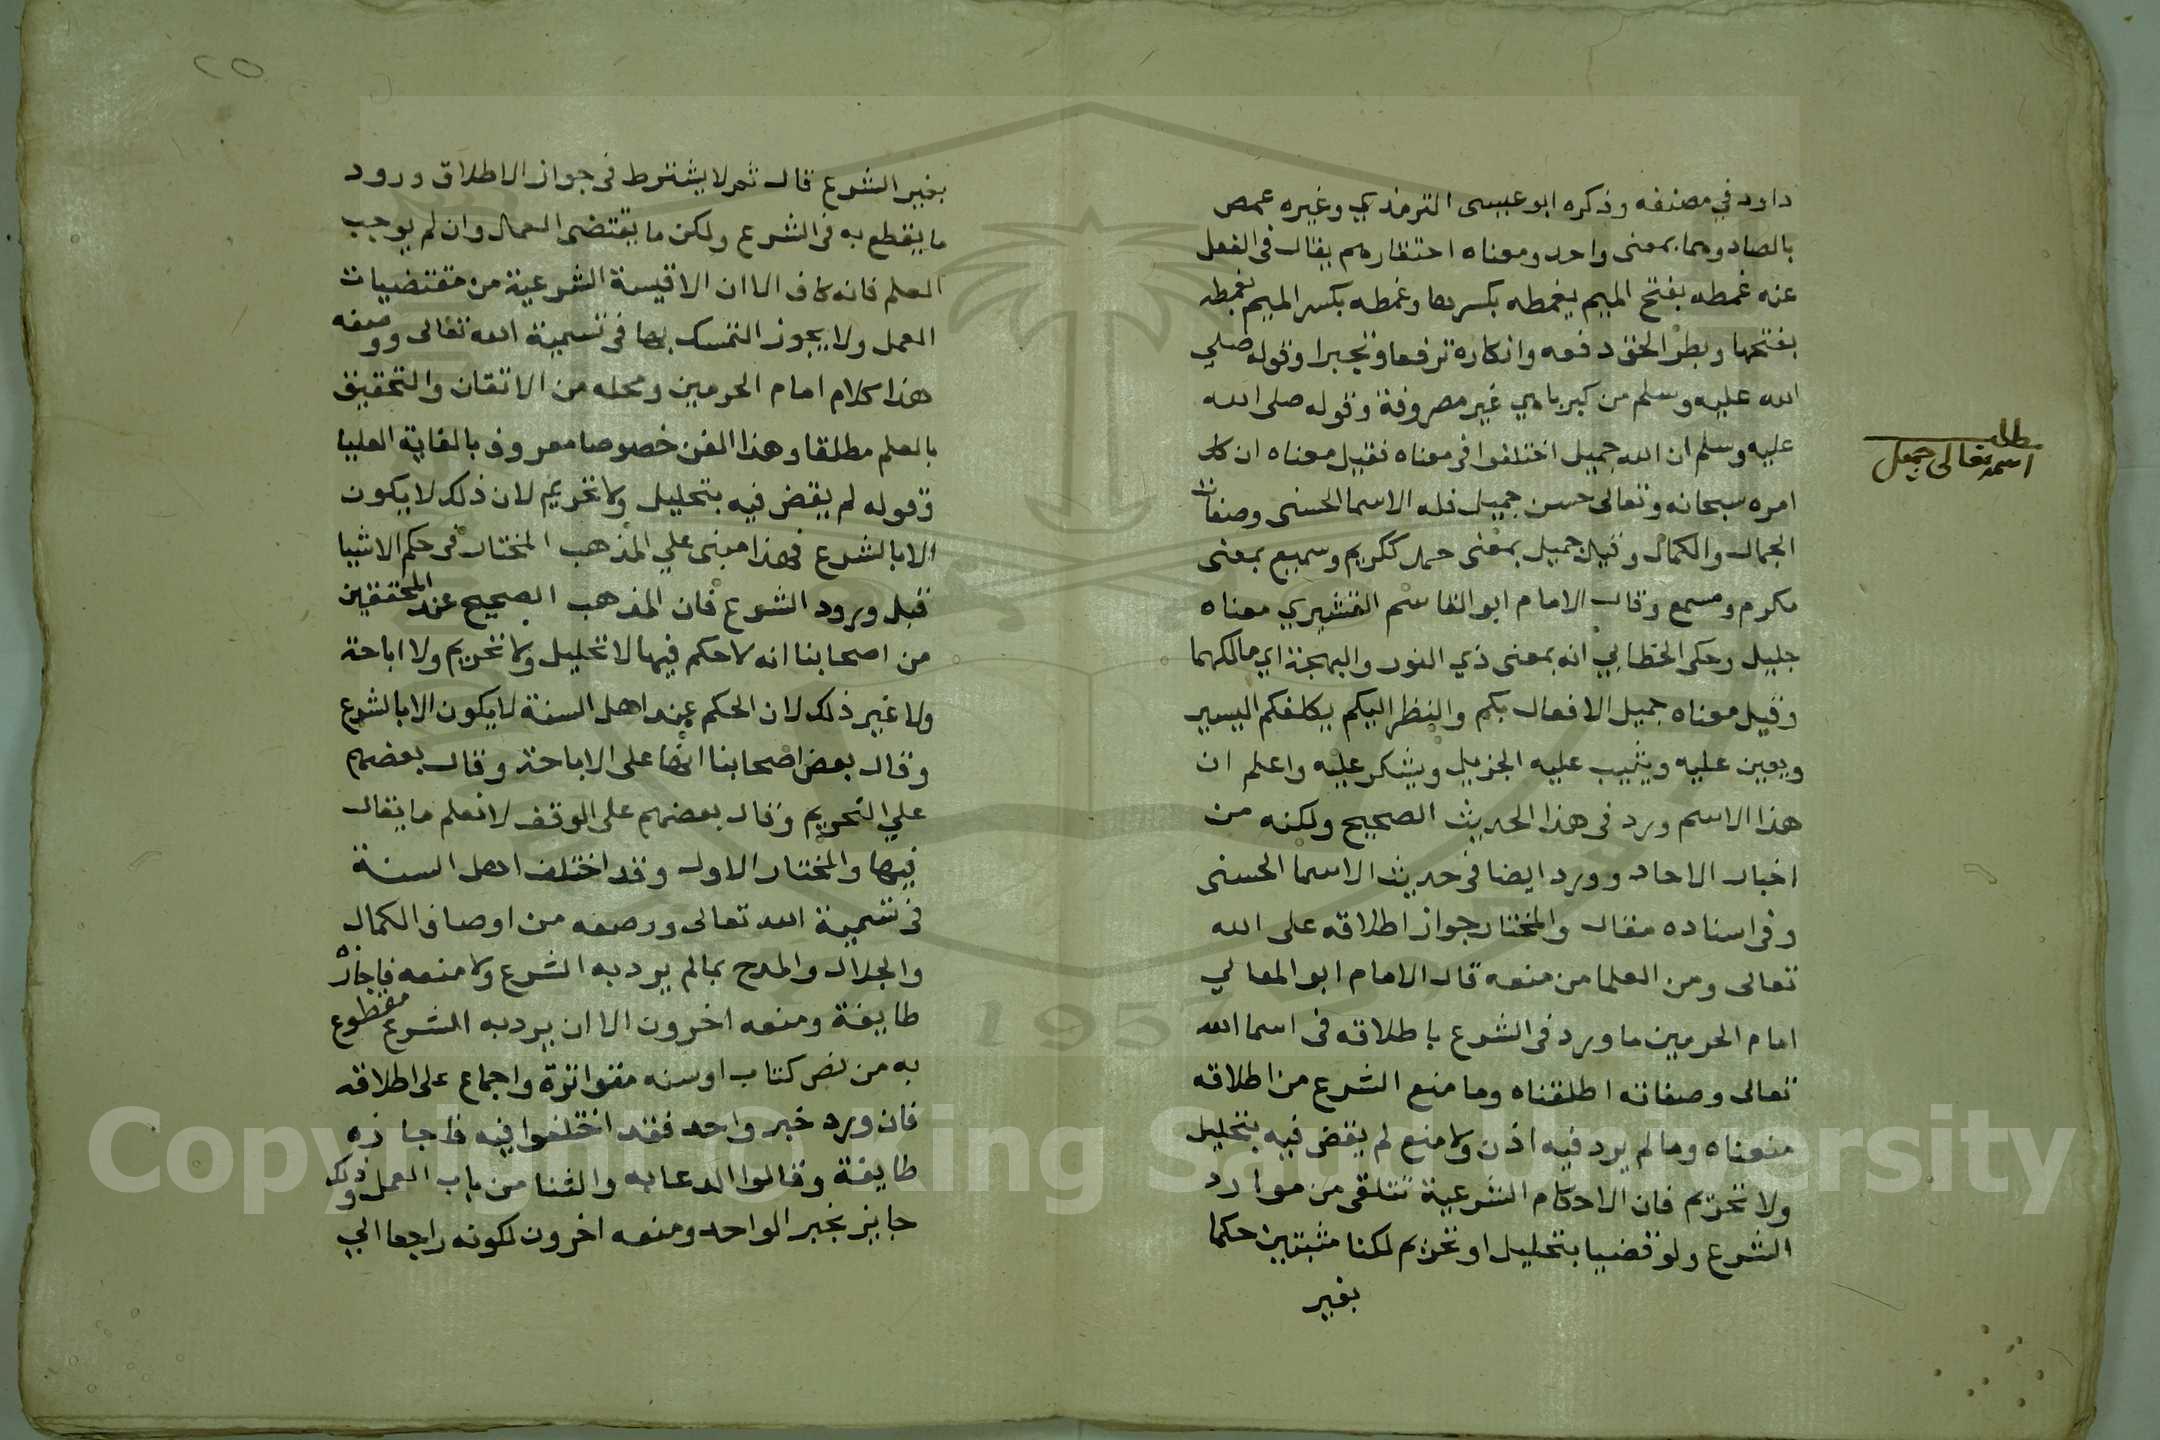 داود في مصنفه وذكره ابو عيسى الترمذي وغيره غمص
بالصاد وهما بمعنى واحد ومعناه احتقارهم يقال في الفعل
منه غمطه بفتح الميم يغمطه بكسرها وغمطه بكسر الميم يغمطه
بفتحها وبطر الحق دفعه وانكاره ترفعا وتجبرا وقوله صلي
الله عليه وسلم من كبريا هي غير مصروفة وقوله صلى الله
عليه وسلم ان الله جميل اختلفوا في معناه فقيل معناه ان كل
امره سبحانه وتعالى حسن جميل فله الاسما الحسنى وصفات
الجمال والكمال وقيل جميل بمعنى مجمل ككريم وسميع بمعنى
مكرم ومسمع وقال الامام ابو القاسم القشيري معناه
جليل وحكى الخطابي انه بمعنى ذي النور والبهجة اي مالكهما
وقيل معناه جميل الافعال بكم والنظر اليكم يكلفكم اليسير
ويعين عليه ويثيب عليه الجزيل ويشكر عليه واعلم ان
هذا الاسم ورد في هذا الحديث الصحيح ولكنه من
اخبار الاحاد وورد ايضا في حديث الاسما الحسنى
وفي اسناده مقال والمختار جواز اطلاقه على الله
تعالى ومن العلما من منعه قال الامام ابو المعالي
امام الحرمين ما ورد في الشرع باطلاقه في اسما الله
تعالى وصفاته اطلقناه وما منع الشرع من اطلاقه
منعناه وما لم يرد فيه اذن ولا منع لم يقض فيه بتحليل
ولا تحريم فان الاحكام الشرعية تتلقى من موارد
الشرع ولو قضينا بتحليل او تحريم لكنا مثبتين حكما
بغير
مطلب
اسمه تعالى جميل
٢٥
بغير الشرع قال ثم لا يشترط في جواز الاطلاق ورود
ما يقطع به في الشرع ولكن ما يقتضى العمل وان لم يوجب
العلم فانه كاف الا ان الاقيسة الشرعية من مقتضيات
العمل ولا يجوز التمسك بها في تسمية الله تعالى ووصفه
هذا كلام امام الحرمين ومحله من الاتقان والتحقيق
بالعلم مطلقا وهذا الفن خصوصا معروف بالغاية العليا
وقوله لم يقض فيه بتحليل ولا تحريم لان ذلك لا يكون
الا بالشرع فهذا مبنى علي المذهب المختار في حكم الاشيا
قبل ورود الشرع فان المذهب الصحيح عند المحققين
من اصحابنا انه لا حكم فيها لا تحليل ولا تحريم ولا اباحة
ولا غير ذلك لان الحكم عند اهل السنة لا يكون الا بالشرع
وقال بعض اصحابنا انها على الاباحة وقال بعضهم
علي التحريم وقال بعضهم على الوقف لا نعلم ما يقال
فيها والمختار الاول وقد اختلف اهل السنة
في تسمية الله تعالى ووصفه من اوصاف الكمال
والجلال والمدح بما لم يرد به الشرع ولا منعه فاجازه
طايفة ومنعه اخرون الا ان يرد به الشرع مقطوع
به من نص كتاب او سنه متواترة واجماع على اطلاقه
فان ورد خبر واحد فقد اختلفوا فيه فاجازه
طايفة وقالوا الدعا به والثنا من باب العمل وذلك
جايز بخبر الواحد ومنعه اخرون لكونه راجعا الي
1957
Copyright © King Saud University